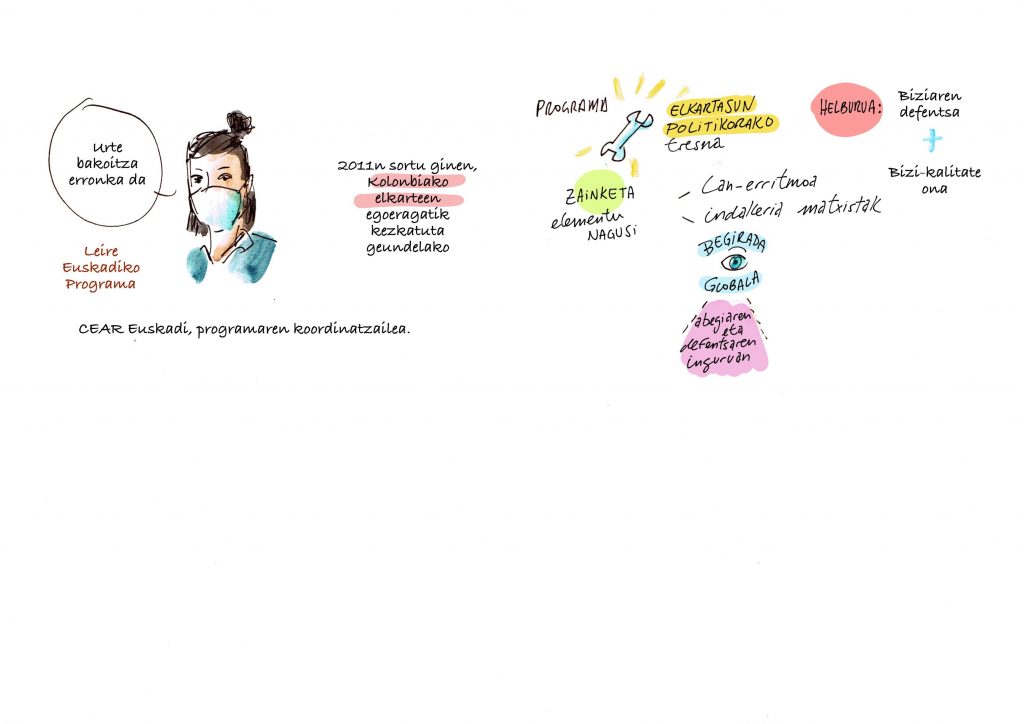 Urte
bakoitza
erronka da
Leire
Euskadiko
Programa
CEAR Euskadi, programaren koordinatzailea.
2011n sortu ginen,
Kolonbiako
elkarteen
egoeragatik
kezkatuta
geundelako
PROGRAMA
ELKARTASUN
POLITIKORAKO
tresna
HELBURUA:
Biziaren
defentsa
+
Bizi-kalitate
ona
ZAINKETA
elementu
NAGUSI
- Lan-erritmoa
- indakeria matxistak
BEGIRADA
GLOBALA
abegiaren
eta
defentsaren
inguruan